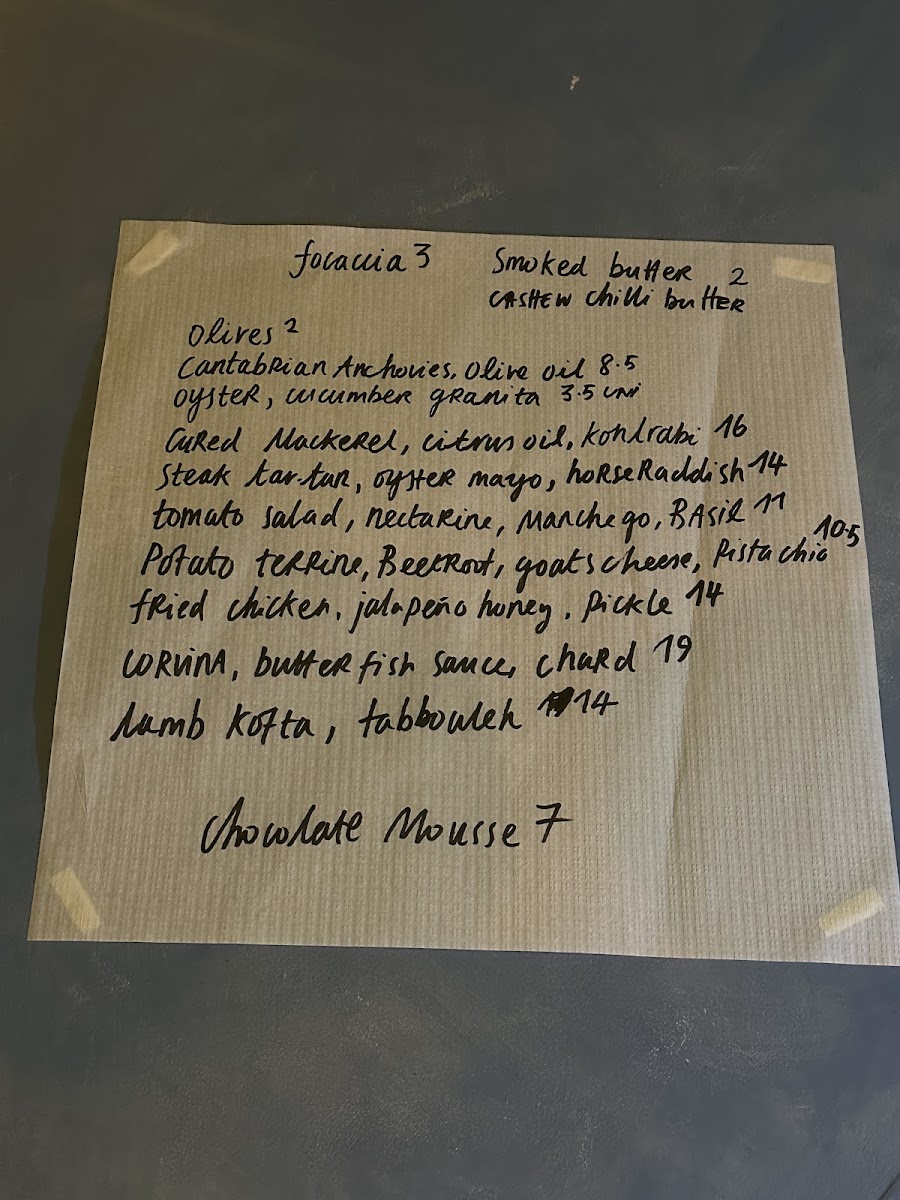 focaccia 3
Smoked butter 2
CASHEW chilli butter
Olives 2
Cantabrian Anchovies, Olive oil 8.5
oyster, cucumber granita 3.5 uni
Cured Mackerel, citrus oil, kohlrabi 16
Steak tar-tar, oyster mayo, horseraddish 14
tomato salad, nectarine, Manchego, Basil 11
Potato terrine, Beetroot, goats cheese, Pistachio 10.5
fried chicken, jalapeño honey, Pickle 14
CORVINA, butter fish sauce, chard 19
Lamb Kofta, tabbouleh 14
Chocolate Mousse 7